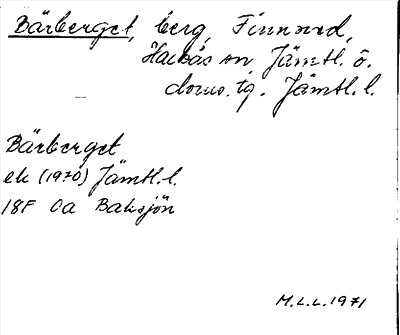 Bärberget, berg, Finnäsd,
Hackås sn Jämtl. ö.
doms.tg. Jämtl. l.
Bärberget
ek (1970) Jämtl. l.
18F 0a Baksjön
M.L.L. 1971